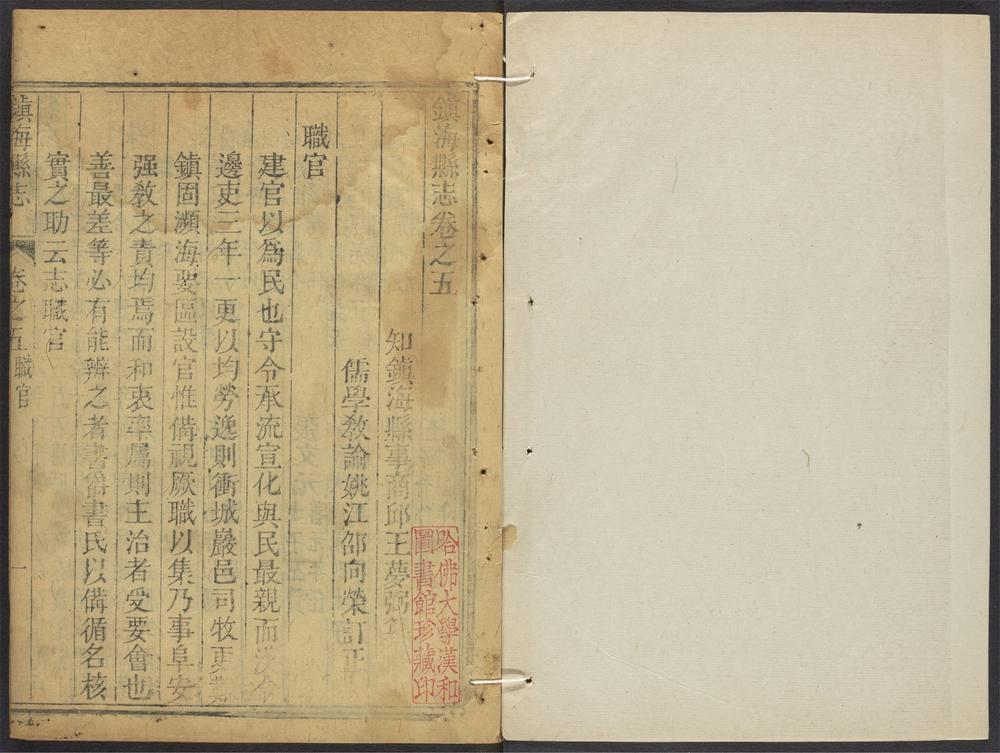 鎮海縣志卷之五
知鎮海縣事商邱王夢弼
儒學教諭姚江邵向榮訂正
職官
建官以爲民也守令承流宣化與民最親而
邊吏三年一更以均勞逸則衝城巖邑司牧更
鎮固瀕海要區設官惟備視厥職以集乃事阜安
强敎之責均焉而和衷率屬則主治者受要會也
善最差等必有能辨之者書爵書氏以備循名核
實之助云志職官
鎮海縣志 卷之五 職官 一
哈佛大學漢和
圖書館珍藏印